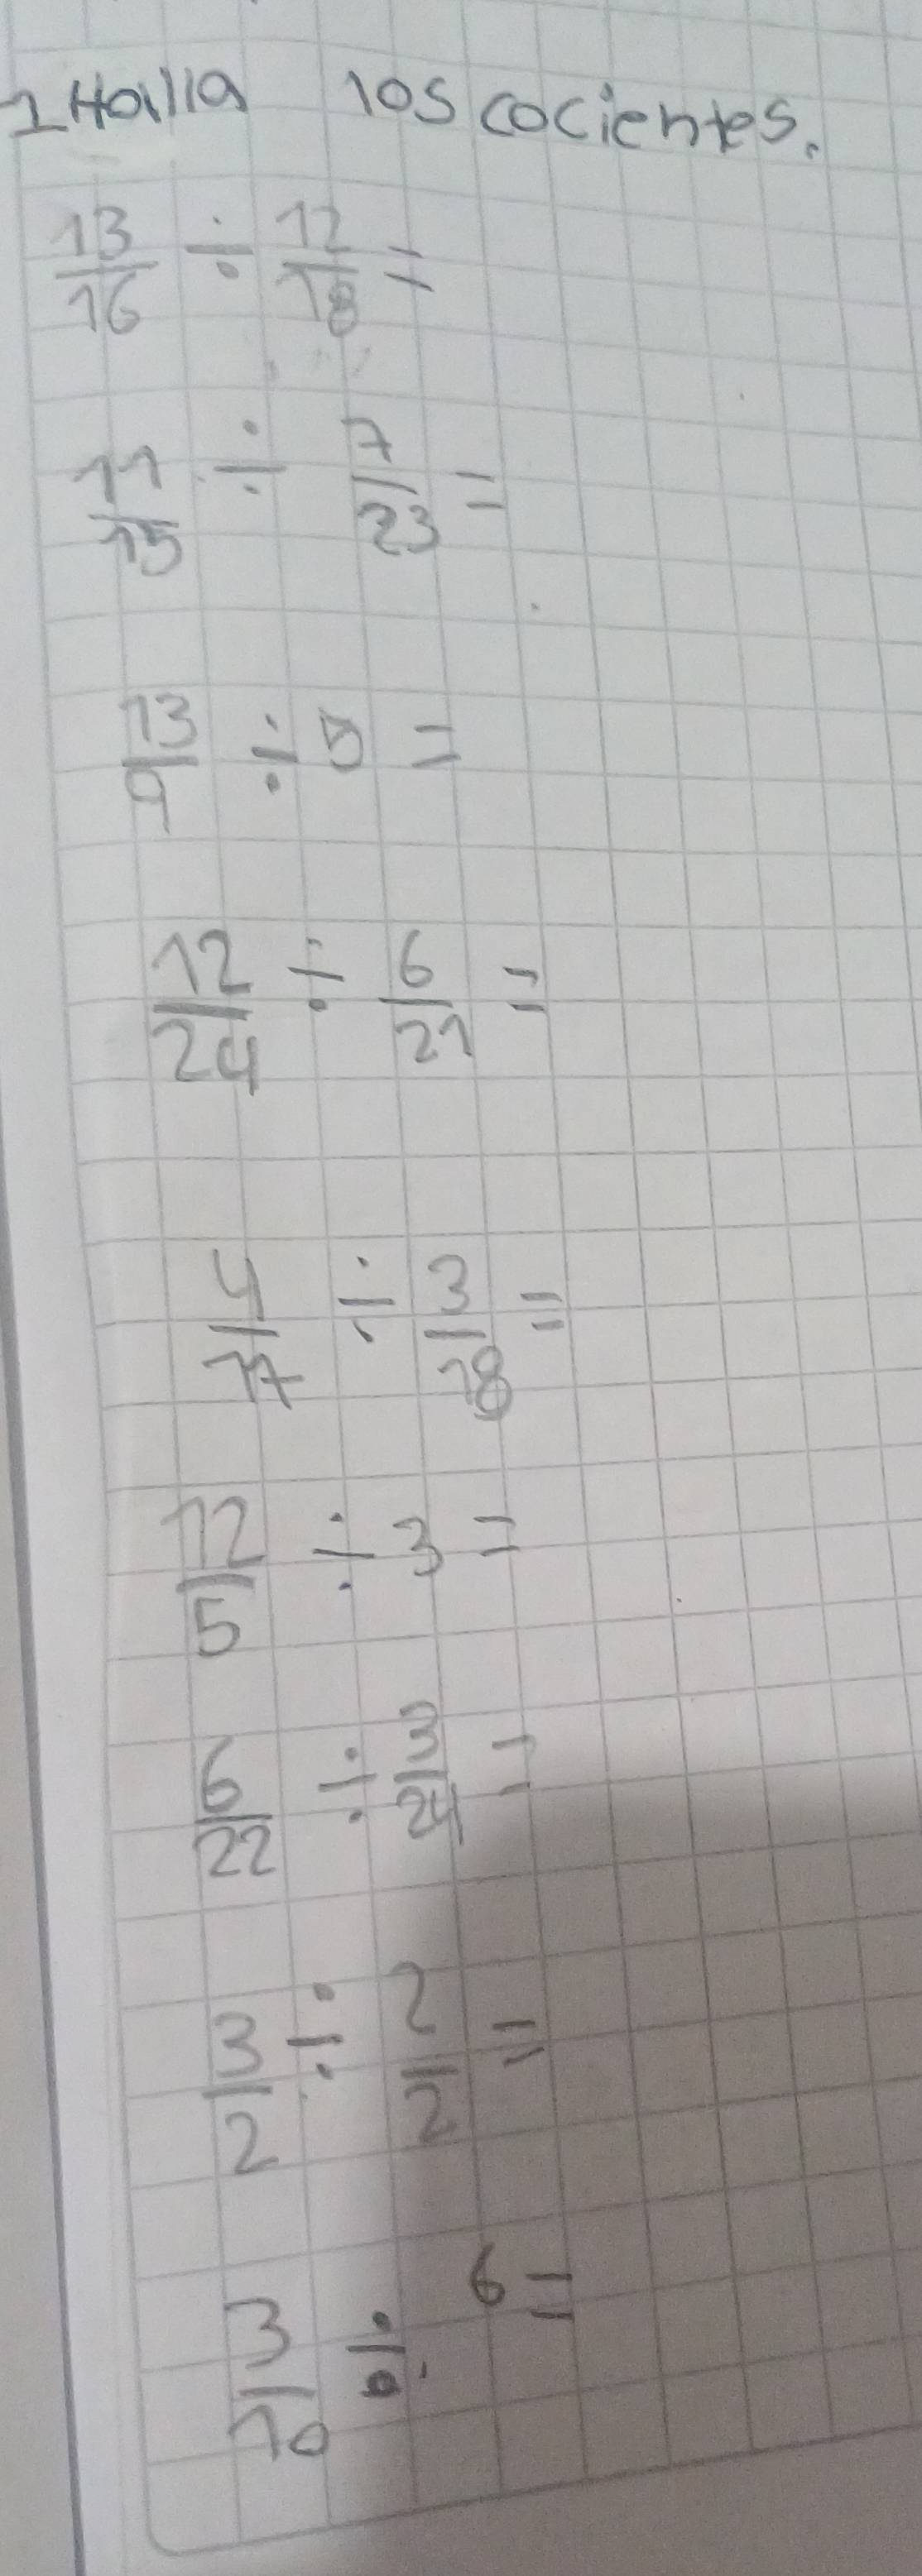 1 Halla los cocientes.
13/16 ÷ 12/18 =
11/15 ÷ 7/23 =
13/9 ÷ 5 =
12/24 ÷ 6/21 =
4/17 ÷ 3/18 =
12/5 ÷ 3 =
6/22 ÷ 3/24 =
3/2 ÷ 2/2 =
3/10 ÷ 6 =